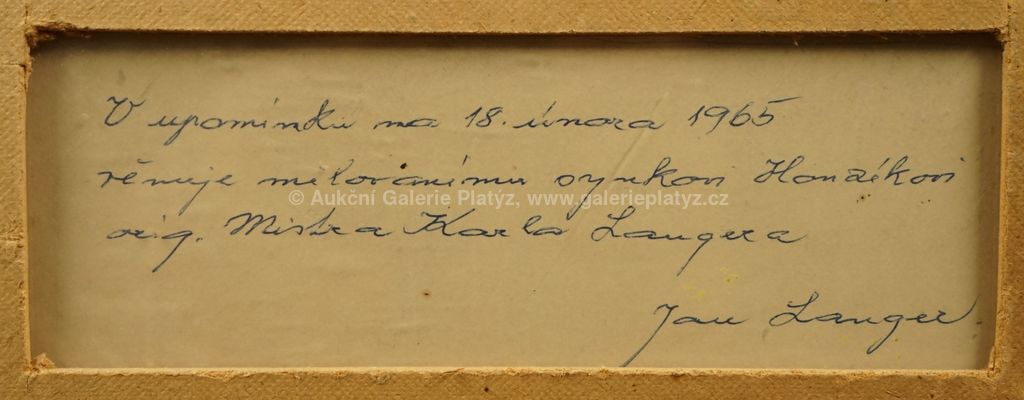 V upomínku na 18. února 1965
věnuje milovanímu synkovi Honzíkovi
© Aukční Galerie Platýz, www.galerieplatyz.cz
orig. Mistra Karla Langera
Jan Langer.